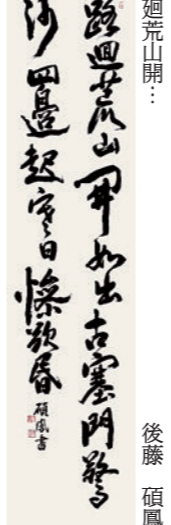 廻荒山開… 後藤 碩鳳
路迴荒山開如出古塞門驚
沙四邊起寒日慘欲昏 碩鳳書